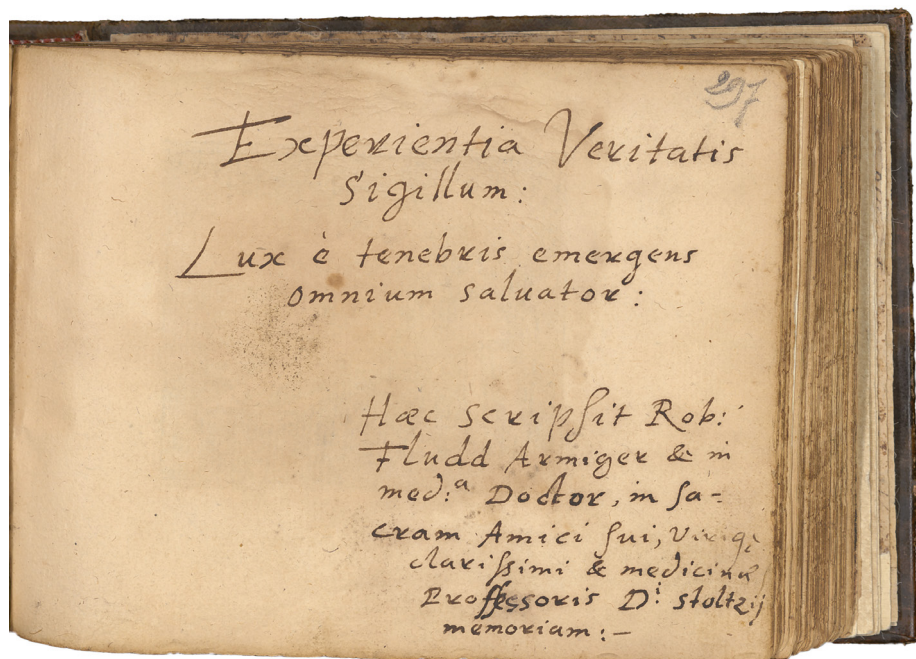 297
Experientia Veritatis
Sigillum:
Lux è tenebris emergens
omnium saluator:
Hæc scripsit Rob:
Fludd Armiger & in
med:ª Doctor, in sa-
cram Amici sui,
clarissimi & medicinæ
Professoris D: stoltzij
memoriam:-